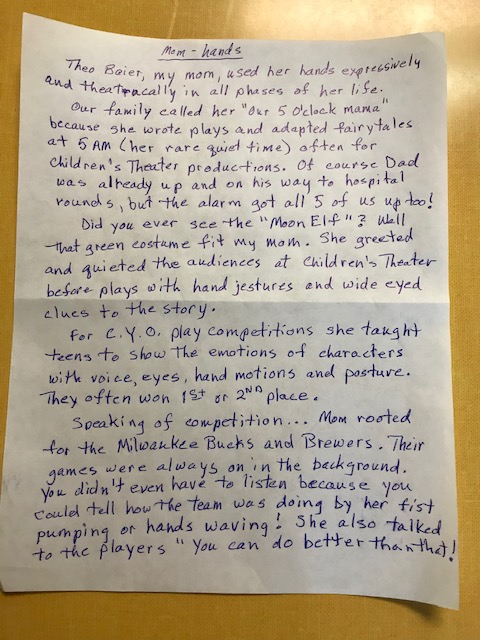 Mom - hands
Theo Baier, my mom, used her hands expressively
and theatracally in all phases of her life.
Our family called her "Our 5 O'clock mama"
because she wrote plays and adapted fairytales
at 5 AM (her rare quiet time) often for
Children's Theater productions. Of course Dad
was already up and on his way to hospital
rounds, but the alarm got all 5 of us up too!
Did you ever see the "Moon Elf"? Well
that green costume fit my mom. She greeted
and quieted the audiences at Children's Theater
before plays with hand jestures and wide eyed
clues to the story.
For C.Y.O. play competitions she taught
teens to show the emotions of characters
with voice, eyes, hand motions and posture.
They often won 1st or 2ND place.
Speaking of competition... Mom rooted
for the Milwaukee Bucks and Brewers. Their
games were always on in the background.
You didn't even have to listen because you
could tell how the team was doing by her fist
pumping or hands waving! She also talked
to the players "You can do better than that!